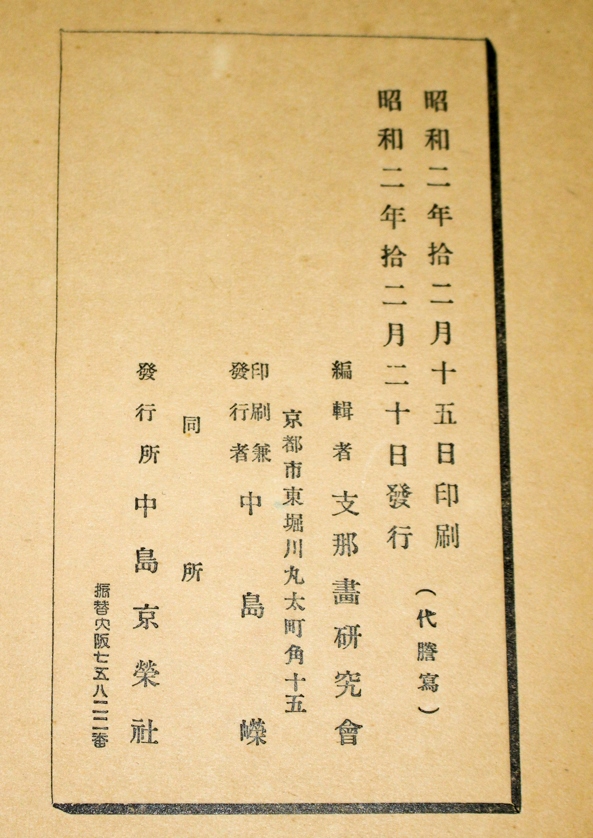 昭和二年拾二月十五日印刷
昭和二年拾二月二十日發行
(代謄寫)
編輯者 支那畫硏究會
京都市東堀川丸太町角十五
印刷兼
發行者 中島嶸
同所
發行所 中島京榮社
振替大阪七五八二二番